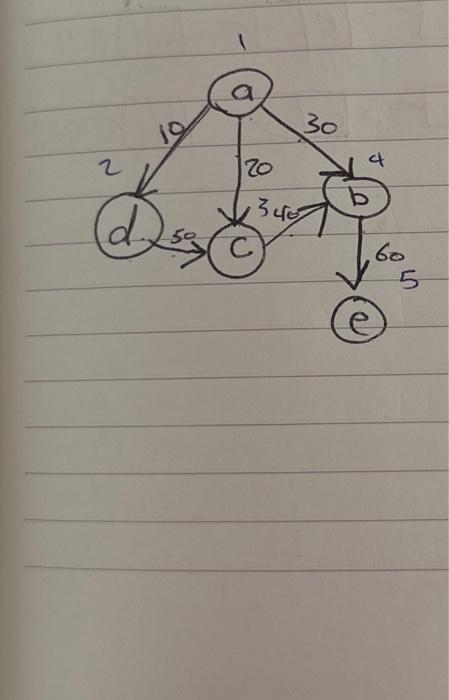 1
a
10
30
2
20
4
b
d
50
3
40
c
60
5
e